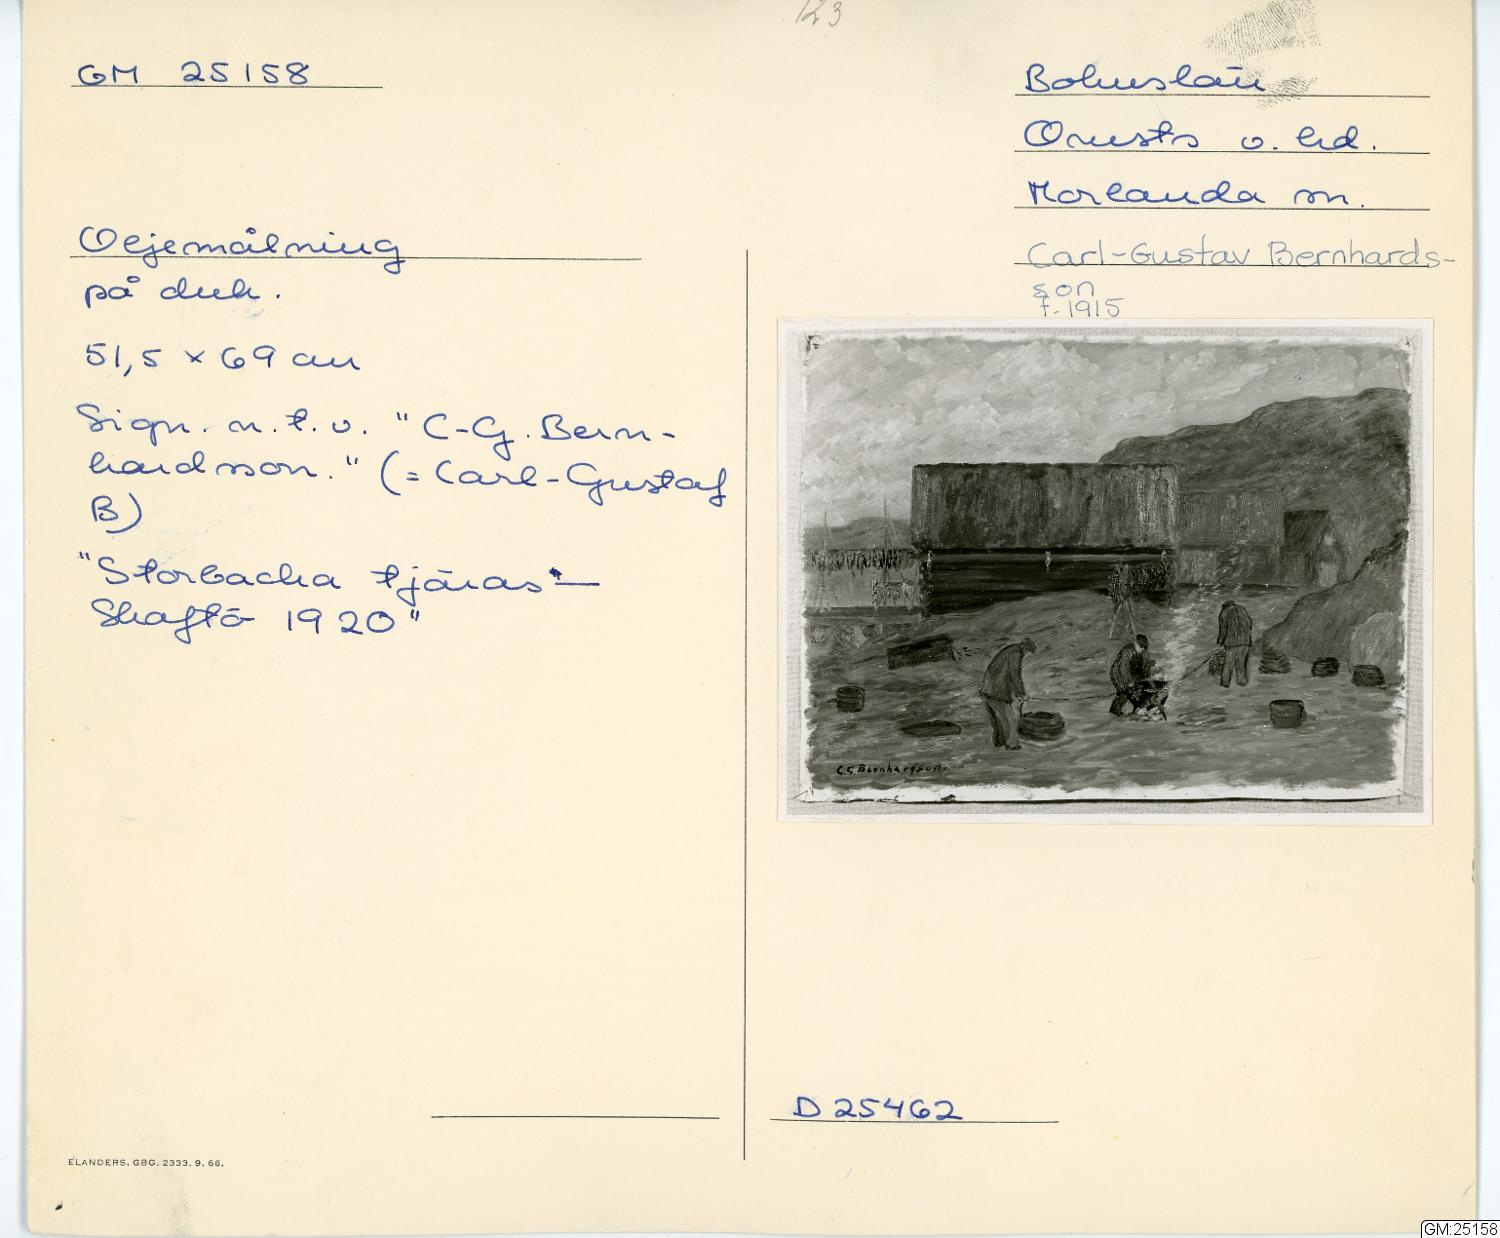 K3
GM 25158
Bohuslän
Orusts v. hd.
Morlanda sn.
Carl-Gustav Bernhards-
son
f. 1915
Oljemålning
på duk.
51,5 × 69 cm
Sign. n. t. v. "C-G. Bern-
hardsson." (= Carl-Gustaf
B)
"Storbacka tjäras -
Skaftö 1920"
C.G. Bernhardson.
D 25462
ELANDERS, GBG. 2333. 9. 66.
GM:25158